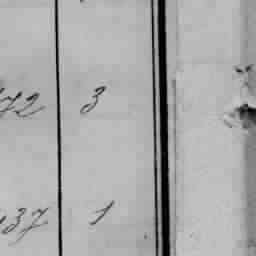 72 3
37 1